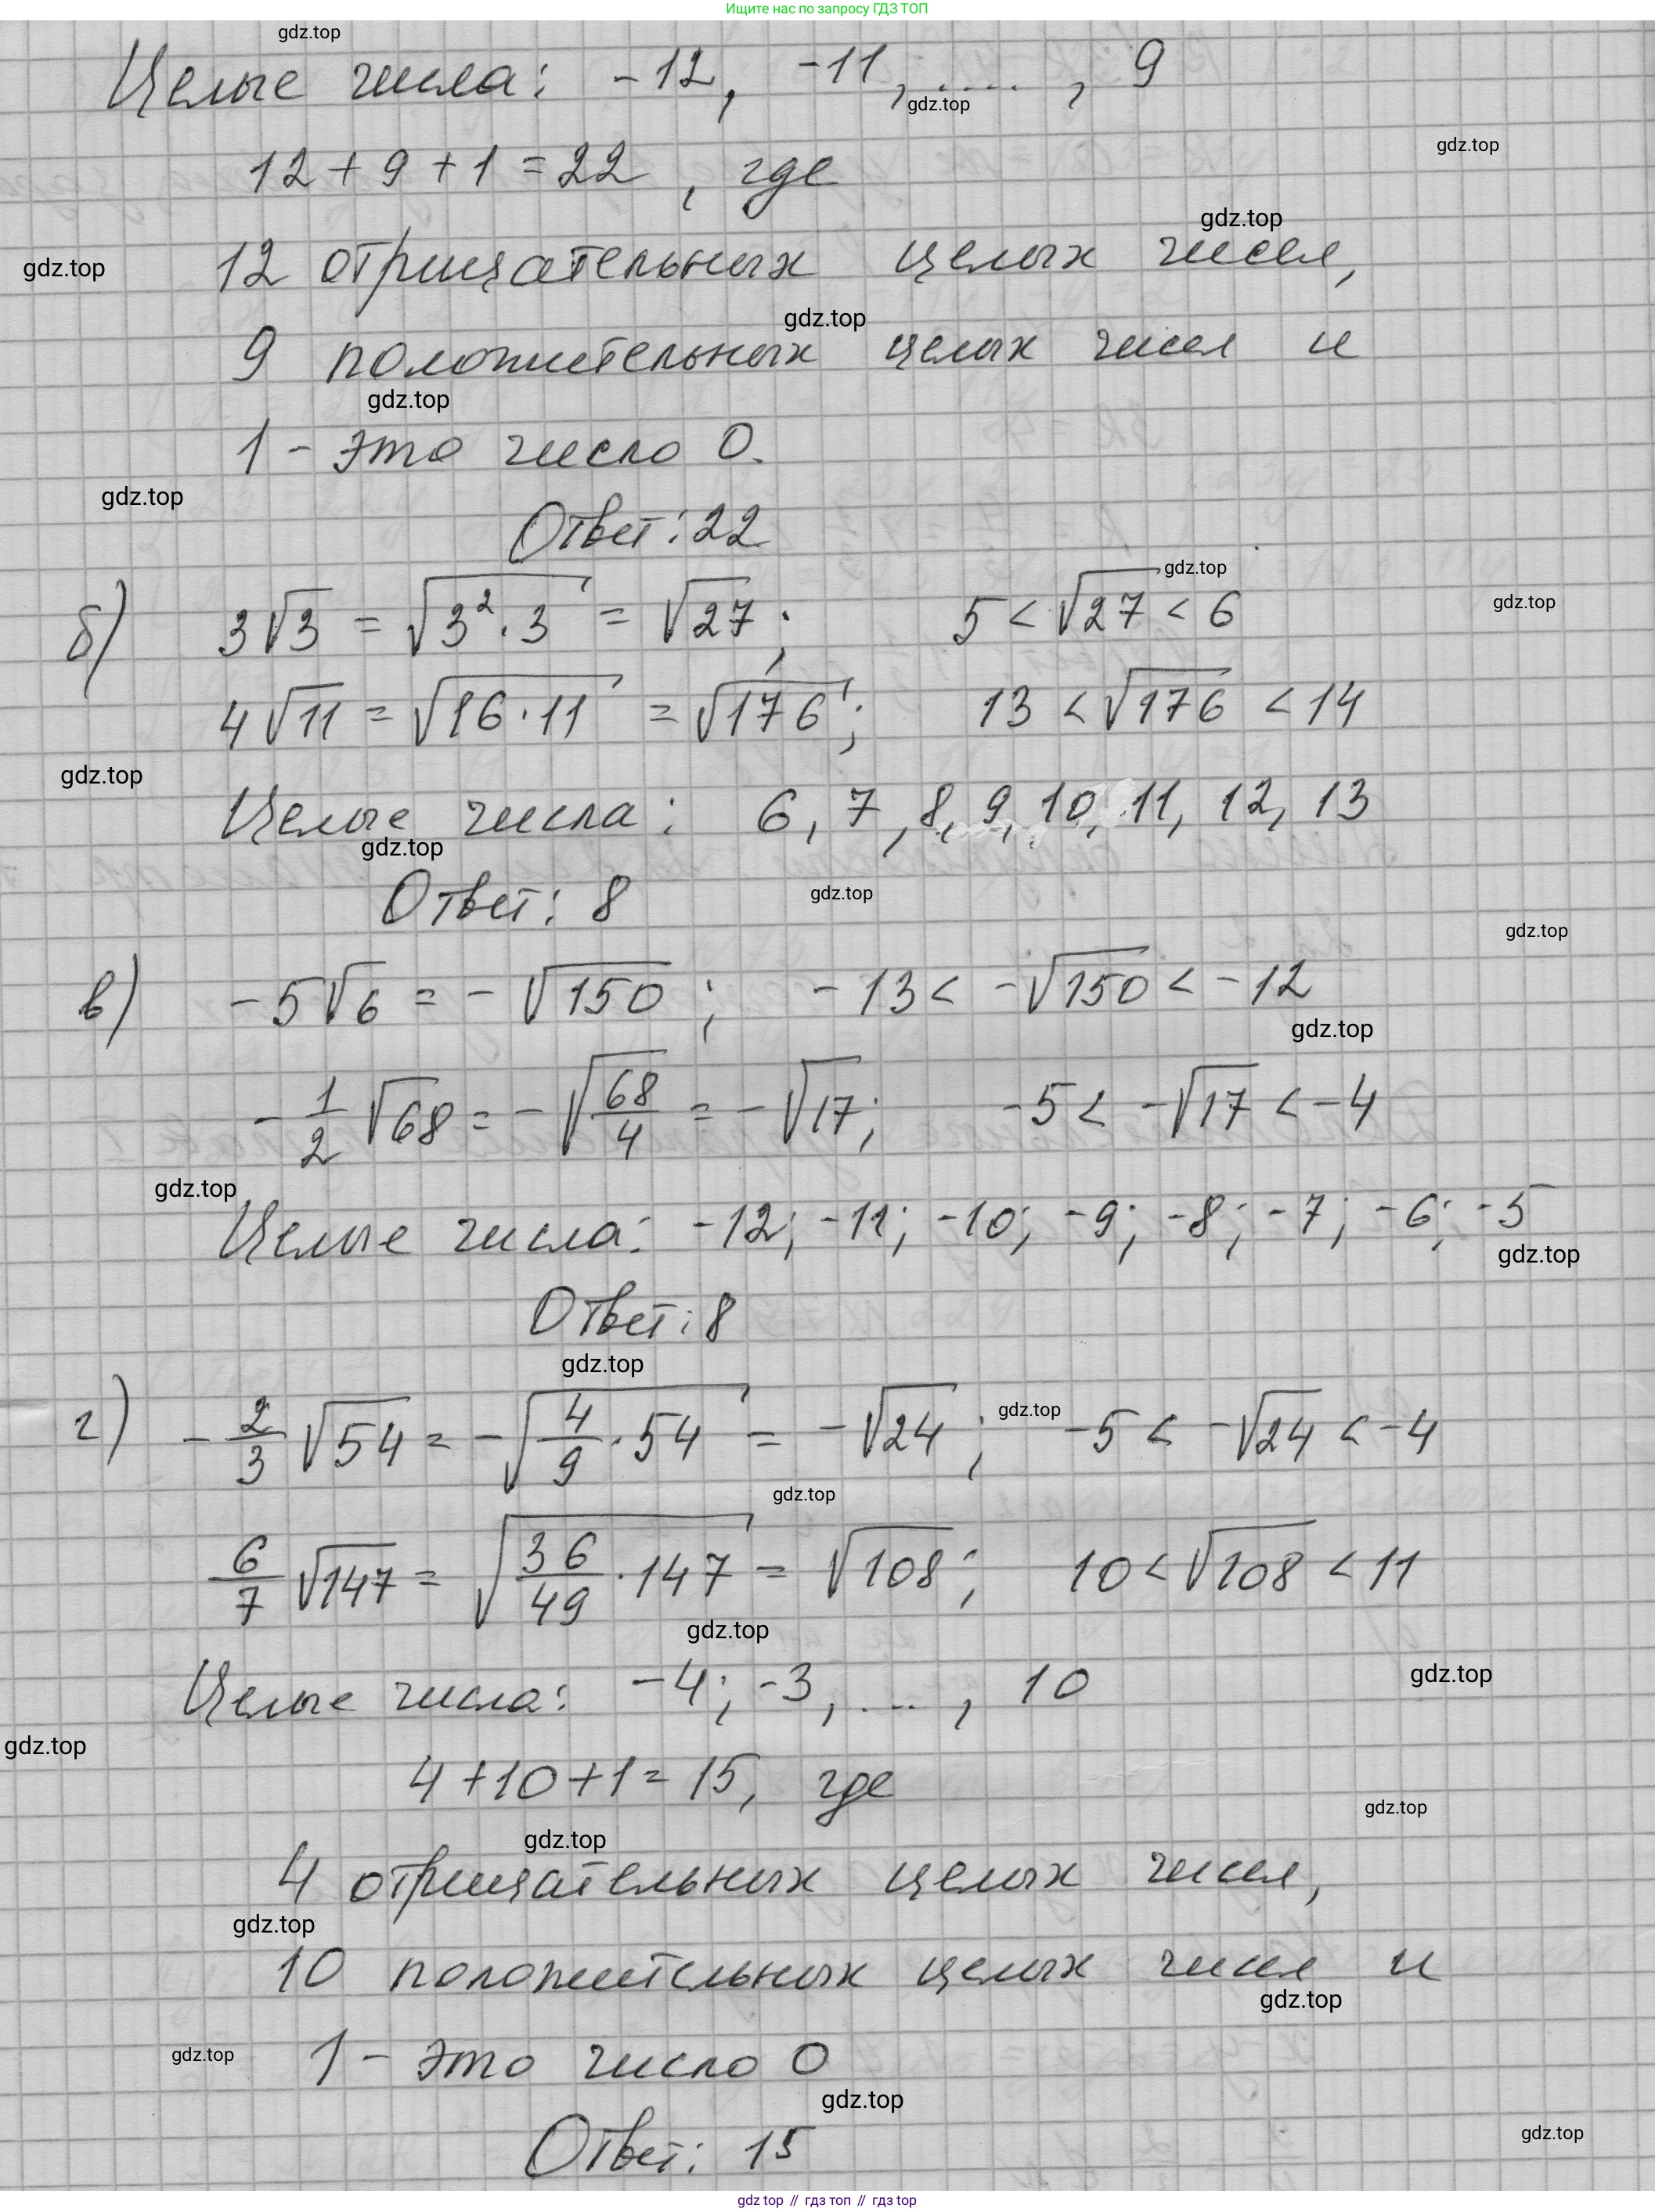 Ищите нас по запросу ГДЗ ТОП
gdz.top
Целые числа: -12, -11, ...., 9
gdz.top
gdz.top
12 + 9 + 1 = 22, где
gdz.top
gdz.top
12 отрицательных целых чисел,
gdz.top
9 положительных целых чисел и
gdz.top
1 - это число 0.
gdz.top
Ответ: 22
gdz.top
gdz.top
б) 3√3 = √(3²·3) = √27; 5 < √27 < 6
4√11 = √(16·11) = √176; 13 < √176 < 14
gdz.top
Целые числа: 6, 7, 8, 9, 10, 11, 12, 13
gdz.top
gdz.top
Ответ: 8
gdz.top
в) -5√6 = -√150; -13 < -√150 < -12
gdz.top
-1/2 √68 = -√(68/4) = -√17; -5 < -√17 < -4
gdz.top
Целые числа: -12; -11; -10; -9; -8; -7; -6; -5
gdz.top
Ответ: 8
gdz.top
г) -2/3 √54 = -√(4/9 · 54) = -√24; -5 < -√24 < -4
gdz.top
gdz.top
6/7 √147 = √(36/49 · 147) = √108; 10 < √108 < 11
gdz.top
Целые числа: -4; -3, ..., 10
gdz.top
gdz.top
4 + 10 + 1 = 15, где
gdz.top
gdz.top
4 отрицательных целых чисел,
gdz.top
10 положительных целых чисел и
gdz.top
1 - это число 0
gdz.top
gdz.top
Ответ: 15
gdz.top
gdz.top // гдз топ // гдз top